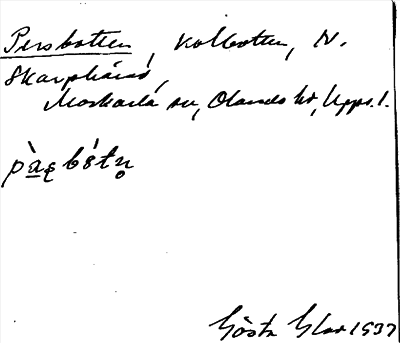 Persbotten, Kolbotten, N.
Skarplärad,
Morkarla sn, Olands hd, Upps. l.
pàꞩbótn̥
Gösta Glar 1937